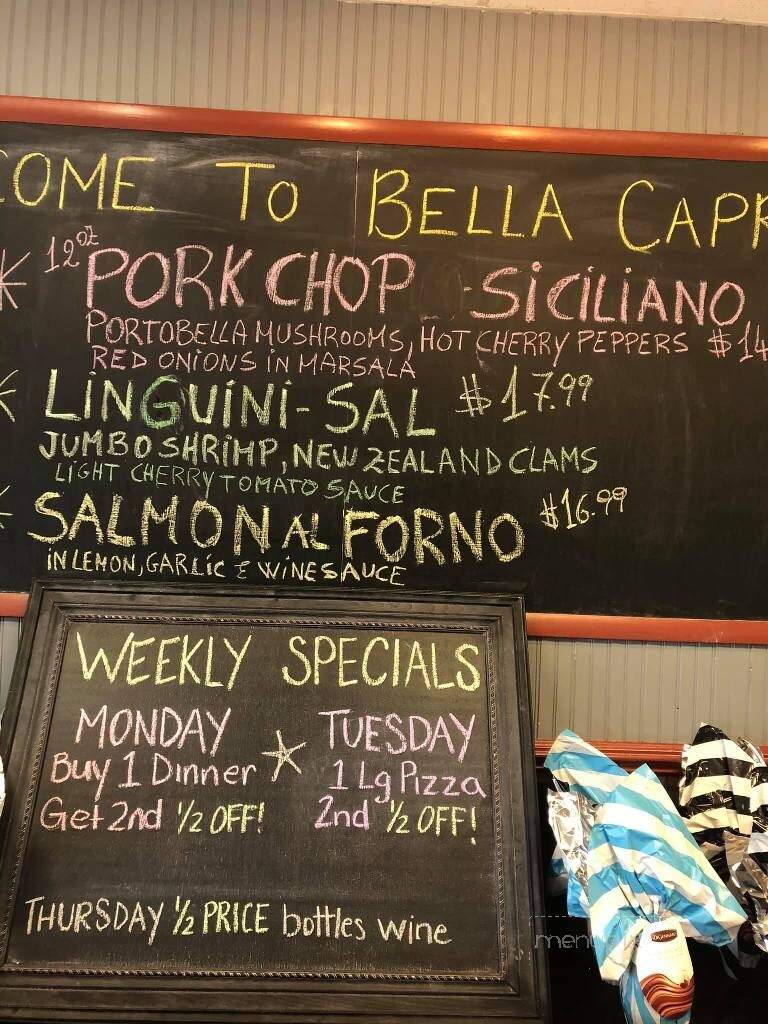 COME TO BELLA CAPR
12oz PORK CHOP - SICILIANO
PORTOBELLA MUSHROOMS, HOT CHERRY PEPPERS $14
RED ONIONS IN MARSALA
LINGUINI - SAL $17.99
JUMBO SHRIMP, NEW ZEALAND CLAMS
LIGHT CHERRY TOMATO SAUCE
SALMON AL FORNO $16.99
IN LEMON, GARLIC & WINE SAUCE
WEEKLY SPECIALS
MONDAY
Buy 1 Dinner
Get 2nd 1/2 OFF!
TUESDAY
1 Lg Pizza
2nd 1/2 OFF!
THURSDAY 1/2 PRICE bottles wine